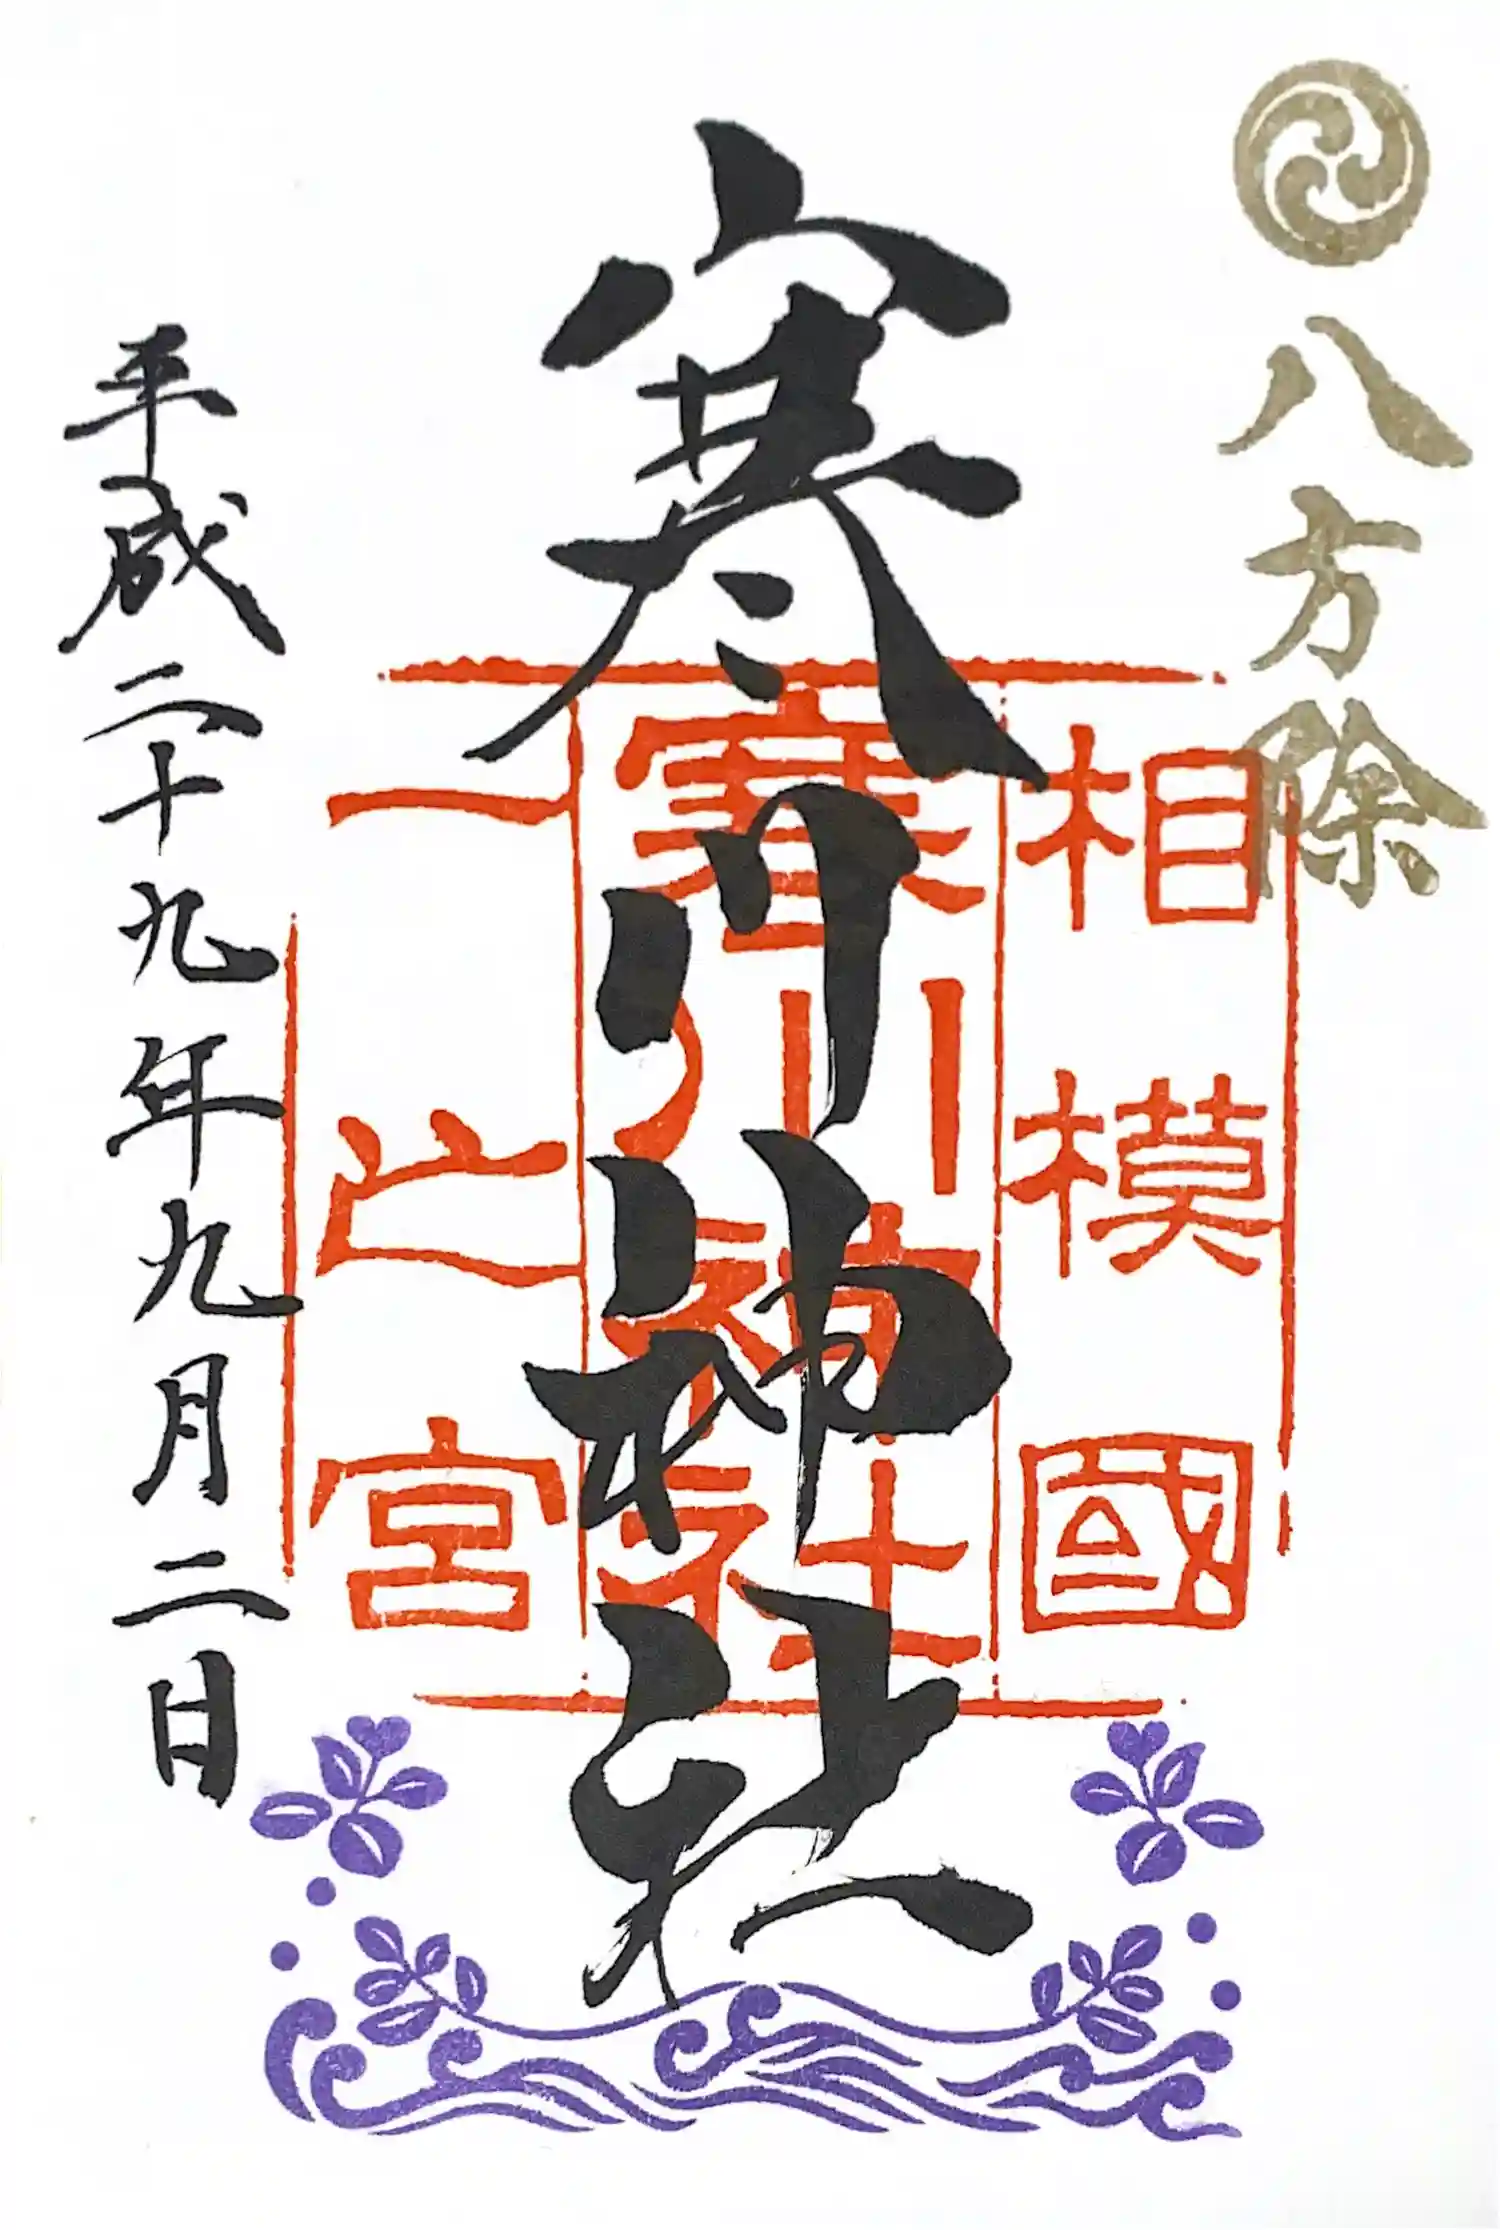 八方除
寒川神社
相模國
寒川神社
一之宮
平成二十九年九月二日